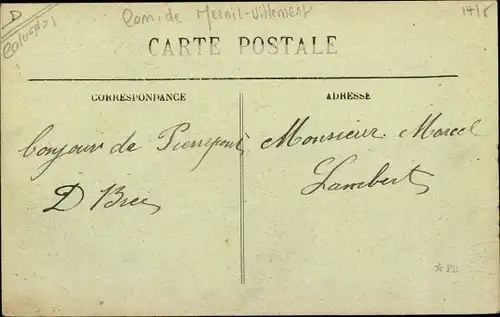 D
Calvados
Com. de Mesnil-Villement
14/8
CARTE POSTALE
CORRESPONDANCE
ADRESSE
bonjour de Pierrepont
D
Monsieur Marcel
Lambert